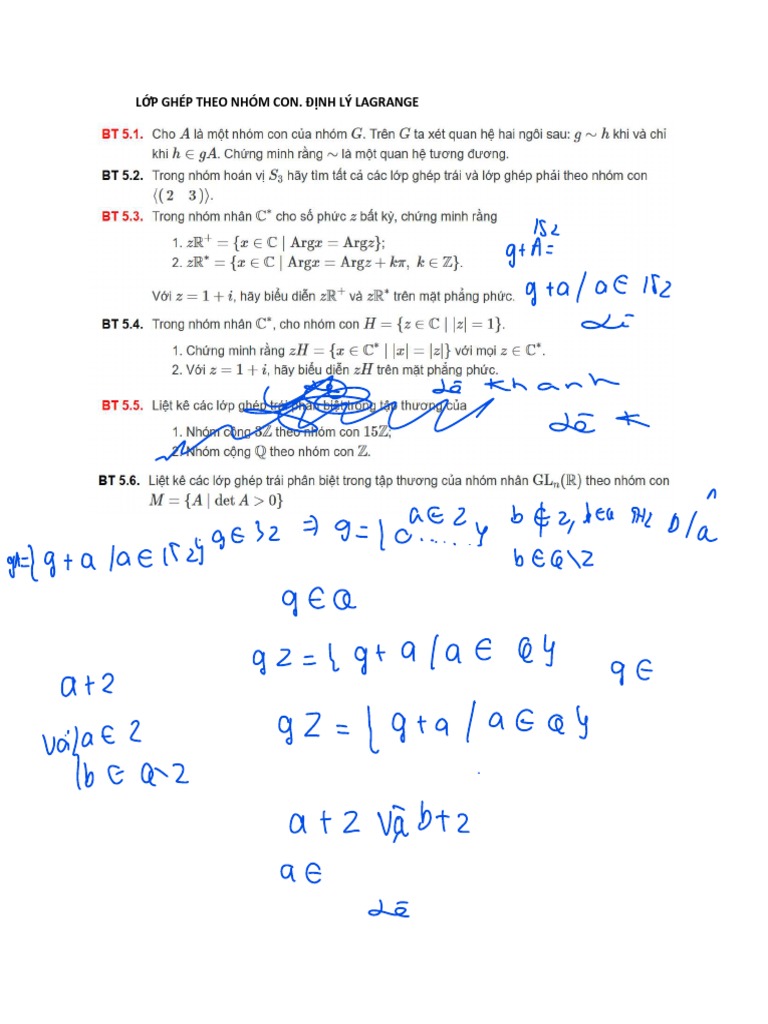 LỚP GHÉP THEO NHÓM CON. ĐỊNH LÝ LAGRANGE
BT 5.1. Cho A là một nhóm con của nhóm G. Trên G ta xét quan hệ hai ngôi sau: g ~ h khi và chỉ
khi h ∈ gA. Chứng minh rằng ~ là một quan hệ tương đương.
BT 5.2. Trong nhóm hoán vị S₃ hãy tìm tất cả các lớp ghép trái và lớp ghép phải theo nhóm con
⟨(2 3)⟩.
BT 5.3. Trong nhóm nhân ℂ* cho số phức z bất kỳ, chứng minh rằng
1. zℝ⁺ = {x ∈ ℂ | Argx = Argz};
2. zℝ* = {x ∈ ℂ | Argx = Argz + kπ, k ∈ ℤ}.
15Z
g+A=
Với z = 1 + i, hãy biểu diễn zℝ⁺ và zℝ* trên mặt phẳng phức.
g+a/a∈ 15Z
BT 5.4. Trong nhóm nhân ℂ*, cho nhóm con H = {z ∈ ℂ | |z| = 1}.
1. Chứng minh rằng zH = {x ∈ ℂ* | |x| = |z|} với mọi z ∈ ℂ*.
2. Với z = 1 + i, hãy biểu diễn zH trên mặt phẳng phức.
Lê Khanh
BT 5.5. Liệt kê các lớp ghép trái phân biệt trong tập thương của
Lê K
1. Nhóm cộng 3ℤ theo nhóm con 15ℤ;
2. Nhóm cộng ℚ theo nhóm con ℤ.
BT 5.6. Liệt kê các lớp ghép trái phân biệt trong tập thương của nhóm nhân GLₙ(ℝ) theo nhóm con
M = {A | det A > 0}
gA={g+a/a∈15Z} g∈3Z ⇒ g={0.....} a∈Z b∉Z,
b∈Q\Z
g∈Q
gZ={g+a/a∈ Q}
g∈
a+Z
gZ={g+a/a∈Q}
với {a∈Z
{b∈Q\Z
a+Z và b+Z
a∈
Lê